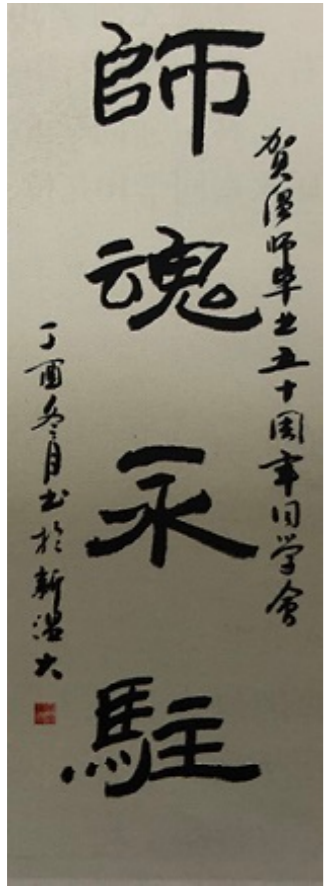 賀温师毕业五十周年同学會
師魂永駐
丁酉冬月书於新温大